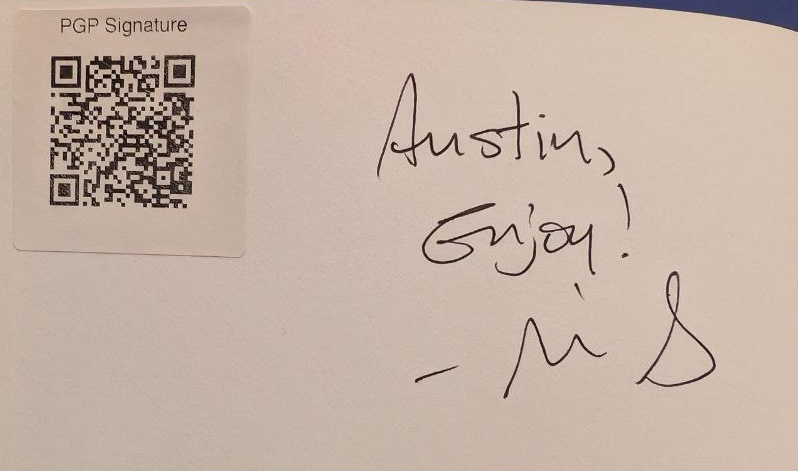 PGP Signature
Austin,
Enjoy!